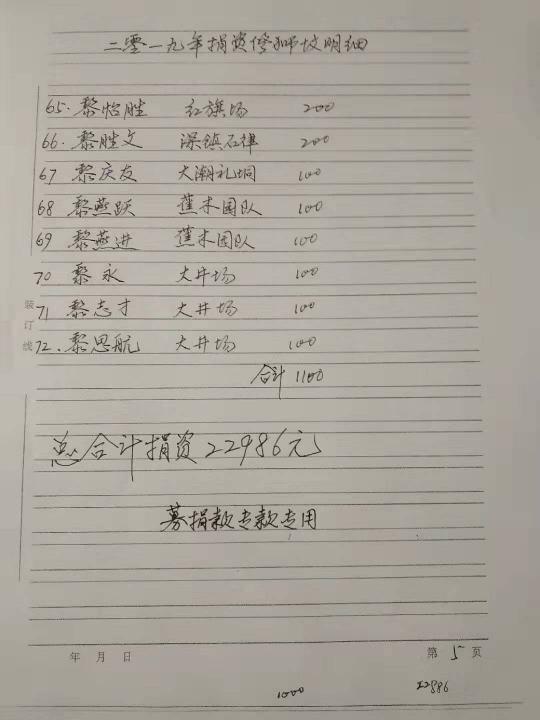 二零一九年捐资修狮坟明细
65. 黎怡胜 红旗场 200
66. 黎胜文 深镇石律 200
67 黎庆友 大潮礼垌 100
68 黎燕跃 蕉木园队 100
69 黎燕进 蕉木园队 100
70 黎永 大井场 100
71 黎志才 大井场 100
72. 黎思航 大井场 100
合计 1100
总合计捐资22986元
募捐款专款专用
装订线
年 月 日
第 5 页
1000
22886